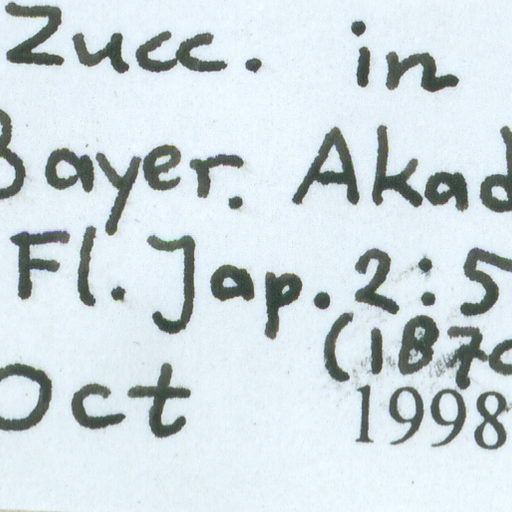 Zucc. in
Bayer. Akad
Fl. Jap. 2:5
(1870
Oct 1998